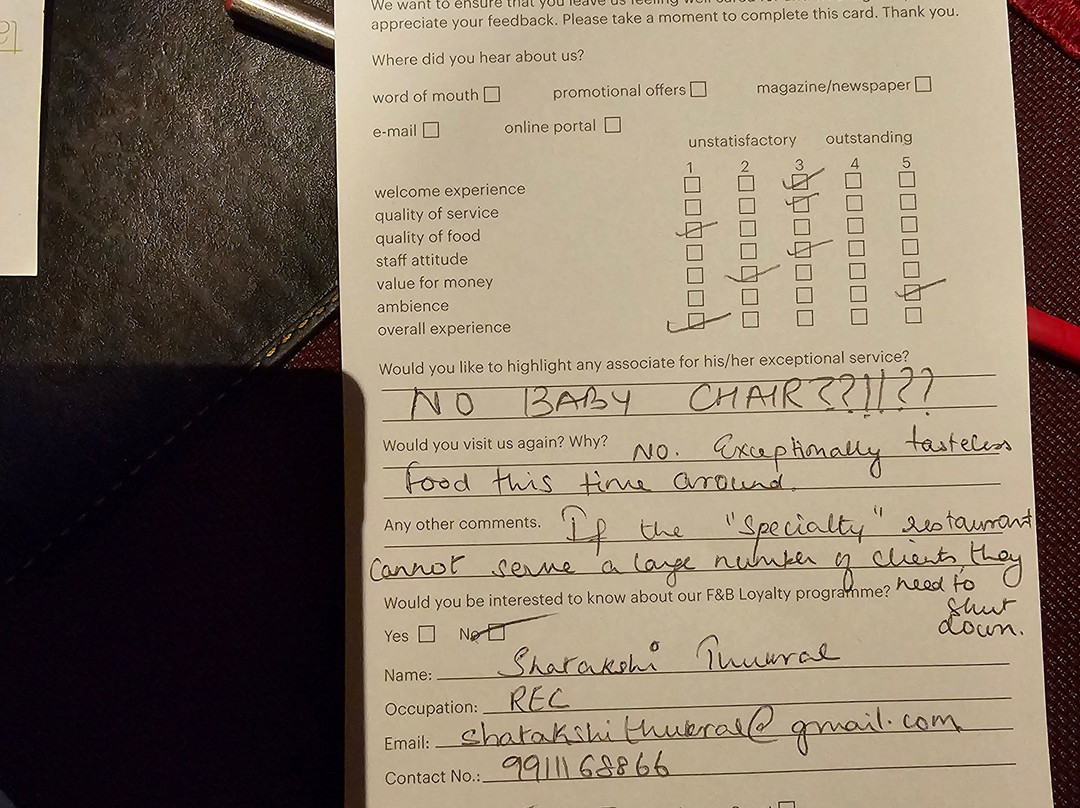 appreciate your feedback. Please take a moment to complete this card. Thank you.
Where did you hear about us?
word of mouth promotional offers magazine/newspaper
e-mail online portal
unstatisfactory outstanding
1 2 3 4 5
welcome experience
quality of service
quality of food
staff attitude
value for money
ambience
overall experience
Would you like to highlight any associate for his/her exceptional service?
NO BABY CHAIR??!!??
Would you visit us again? Why? NO. Exceptionally tasteless
food this time around.
Any other comments. If the "Specialty" restaurant
cannot serve a large number of clients, they
Would you be interested to know about our F&B Loyalty programme? need to
shut
Yes No down.
Name: Shatakshi Thukral
Occupation: REC
Email: shatakshithukral@gmail.com
Contact No.: 9911168866